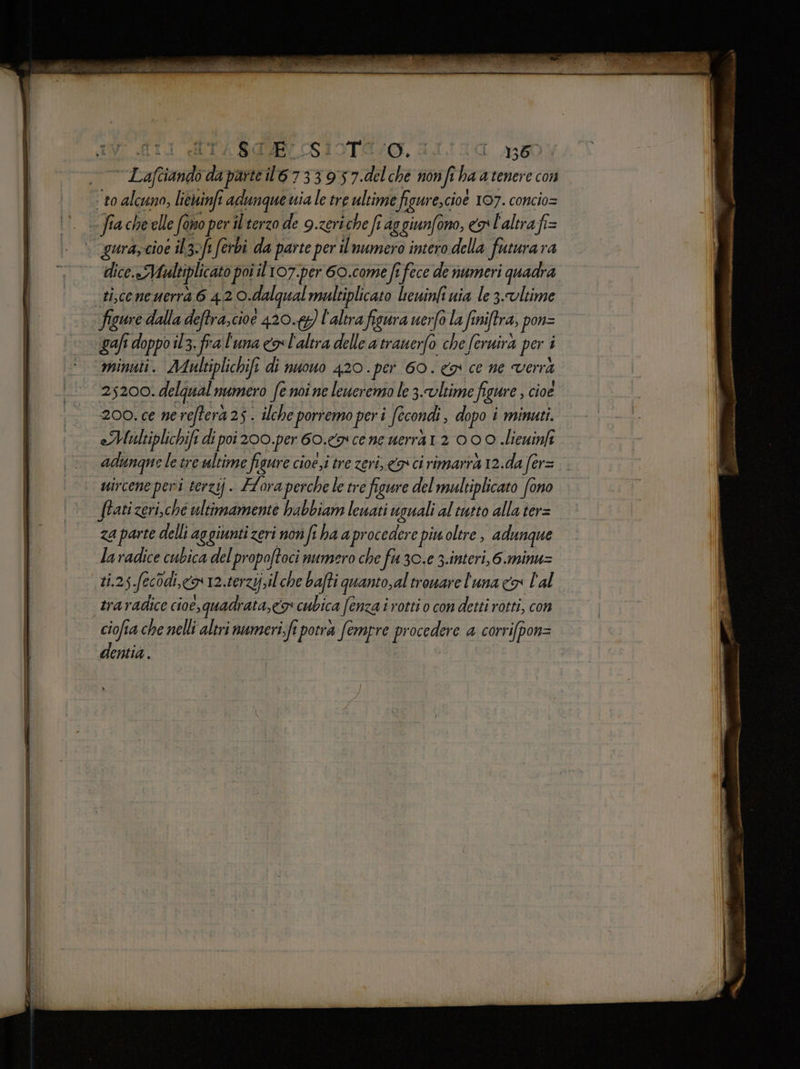 SESTO. 136
Lasciando da parte il 6 7 3 3 9 5 7. del che non si ha a tenere con
to alcuno, lieuinsi adunque uia le tre ultime figure, cioè 107. concio=
sia che elle sono per il terzo de 9. zeri che si aggiunsono, & l'altra fi=
gura, cioè il 3. si serbi da parte per il numero intero della futura ra
dice. Multiplicato poi il 107. per 60. come si fece de numeri quadra
ti, ce ne uerrà 6 4 2 0. dal qual multiplicato lieuinsi uia le 3. vltime
figure dalla destra, cioè 420. & l'altra figura uerso la sinistra, pon=
gasi doppo il 3. fra l'una & l'altra delle a trauerso che seruirà per i
minuti. Multiplichisi di nuouo 420. per 60. & ce ne verrà
25200. del qual numero se noi ne leueremo le 3. vltime figure, cioè
200. ce ne resterà 25. il che porremo per i secondi, dopo i minuti.
Multiplichisi di poi 200. per 60. & ce ne uerrà 1 2 0 0 0. lieuinsi
adunque le tre ultime figure cioè, i tre zeri, & ci rimarrà 12. da ser=
uircene per i terzij. Hora perche le tre figure del multiplicato sono
stati zeri, che ultimamente habbiam leuati uguali al tutto alla ter=
za parte delli aggiunti zeri non si ha a procedere piu oltre, adunque
la radice cubica del propostoci numero che fu 30. e 3. interi, 6. minu=
ti. 25. secōdi, & 12. terzij, il che basti quanto, al trouare l'una & l'al
tra radice cioè, quadrata, & cubica senza i rotti o con detti rotti, con
ciosia che nelli altri numeri, si potrà sempre procedere a corrispon=
dentia.